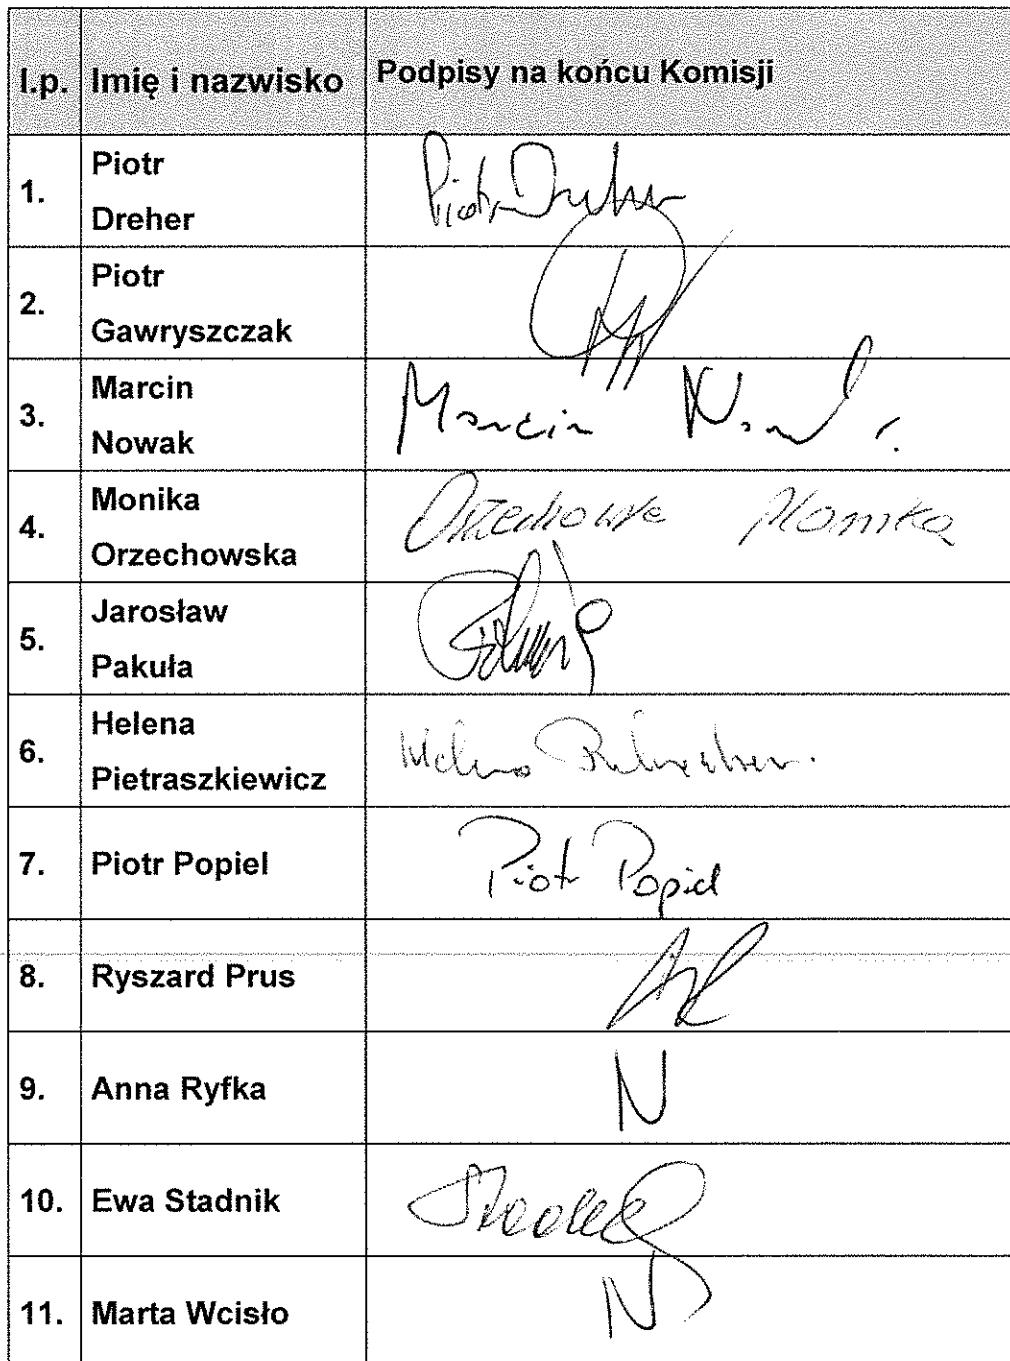 l.p. Imię i nazwisko Podpisy na końcu Komisji
1. Piotr Dreher Piotr Dreher
2. Piotr Gawryszczak
3. Marcin Nowak Marcin Nowak
4. Monika Orzechowska Monika
5. Jarosław Pakuła
6. Helena Pietraszkiewicz Helena
7. Piotr Popiel Piotr Popiel
8. Ryszard Prus
9. Anna Ryfka N
10. Ewa Stadnik
11. Marta Wcisło N